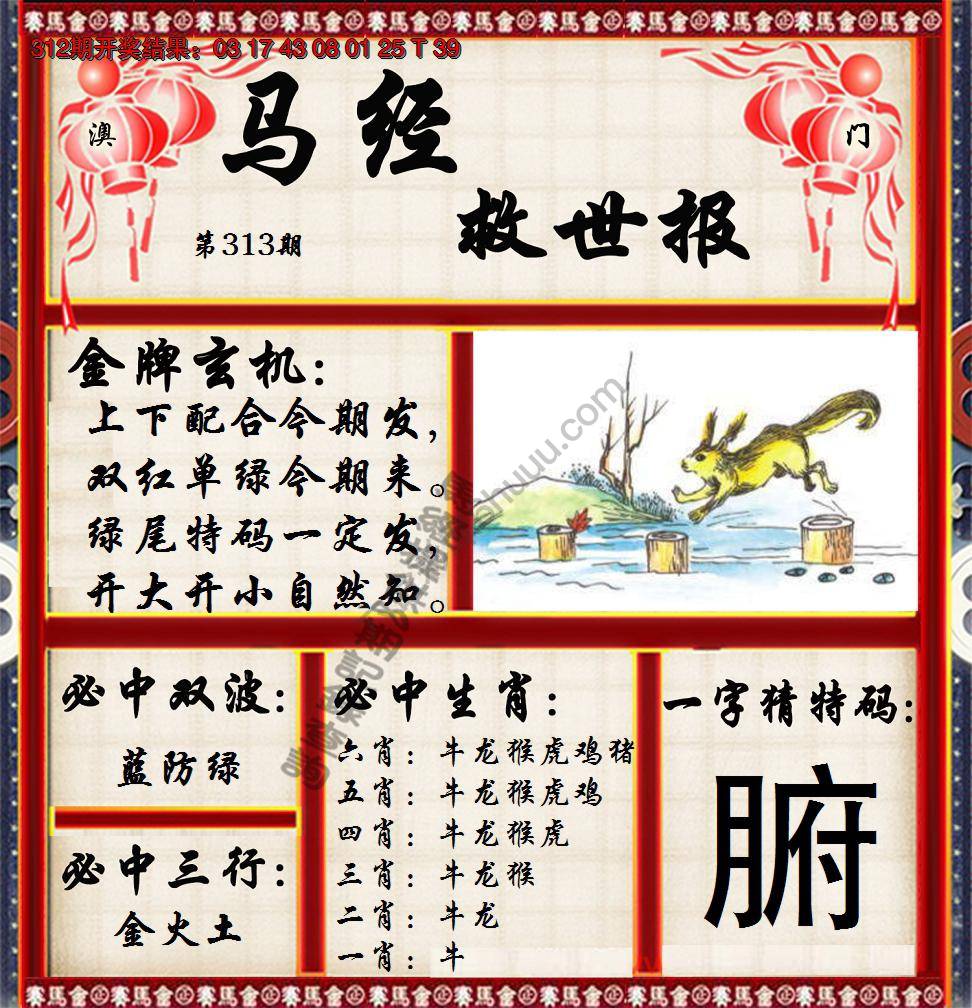 312期开奖结果：03 17 43 08 01 25 T 39
澳
门
马经
救世报
第313期
金牌玄机：
上下配合今期发，
双红单绿今期来。
绿尾特码一定发，
开大开小自然知。
必中双波：
蓝防绿
必中三行：
金火土
必中生肖：
六肖：牛龙猴虎鸡猪
五肖：牛龙猴虎鸡
四肖：牛龙猴虎
三肖：牛龙猴
二肖：牛龙
一肖：牛
一字猜特码：
腑